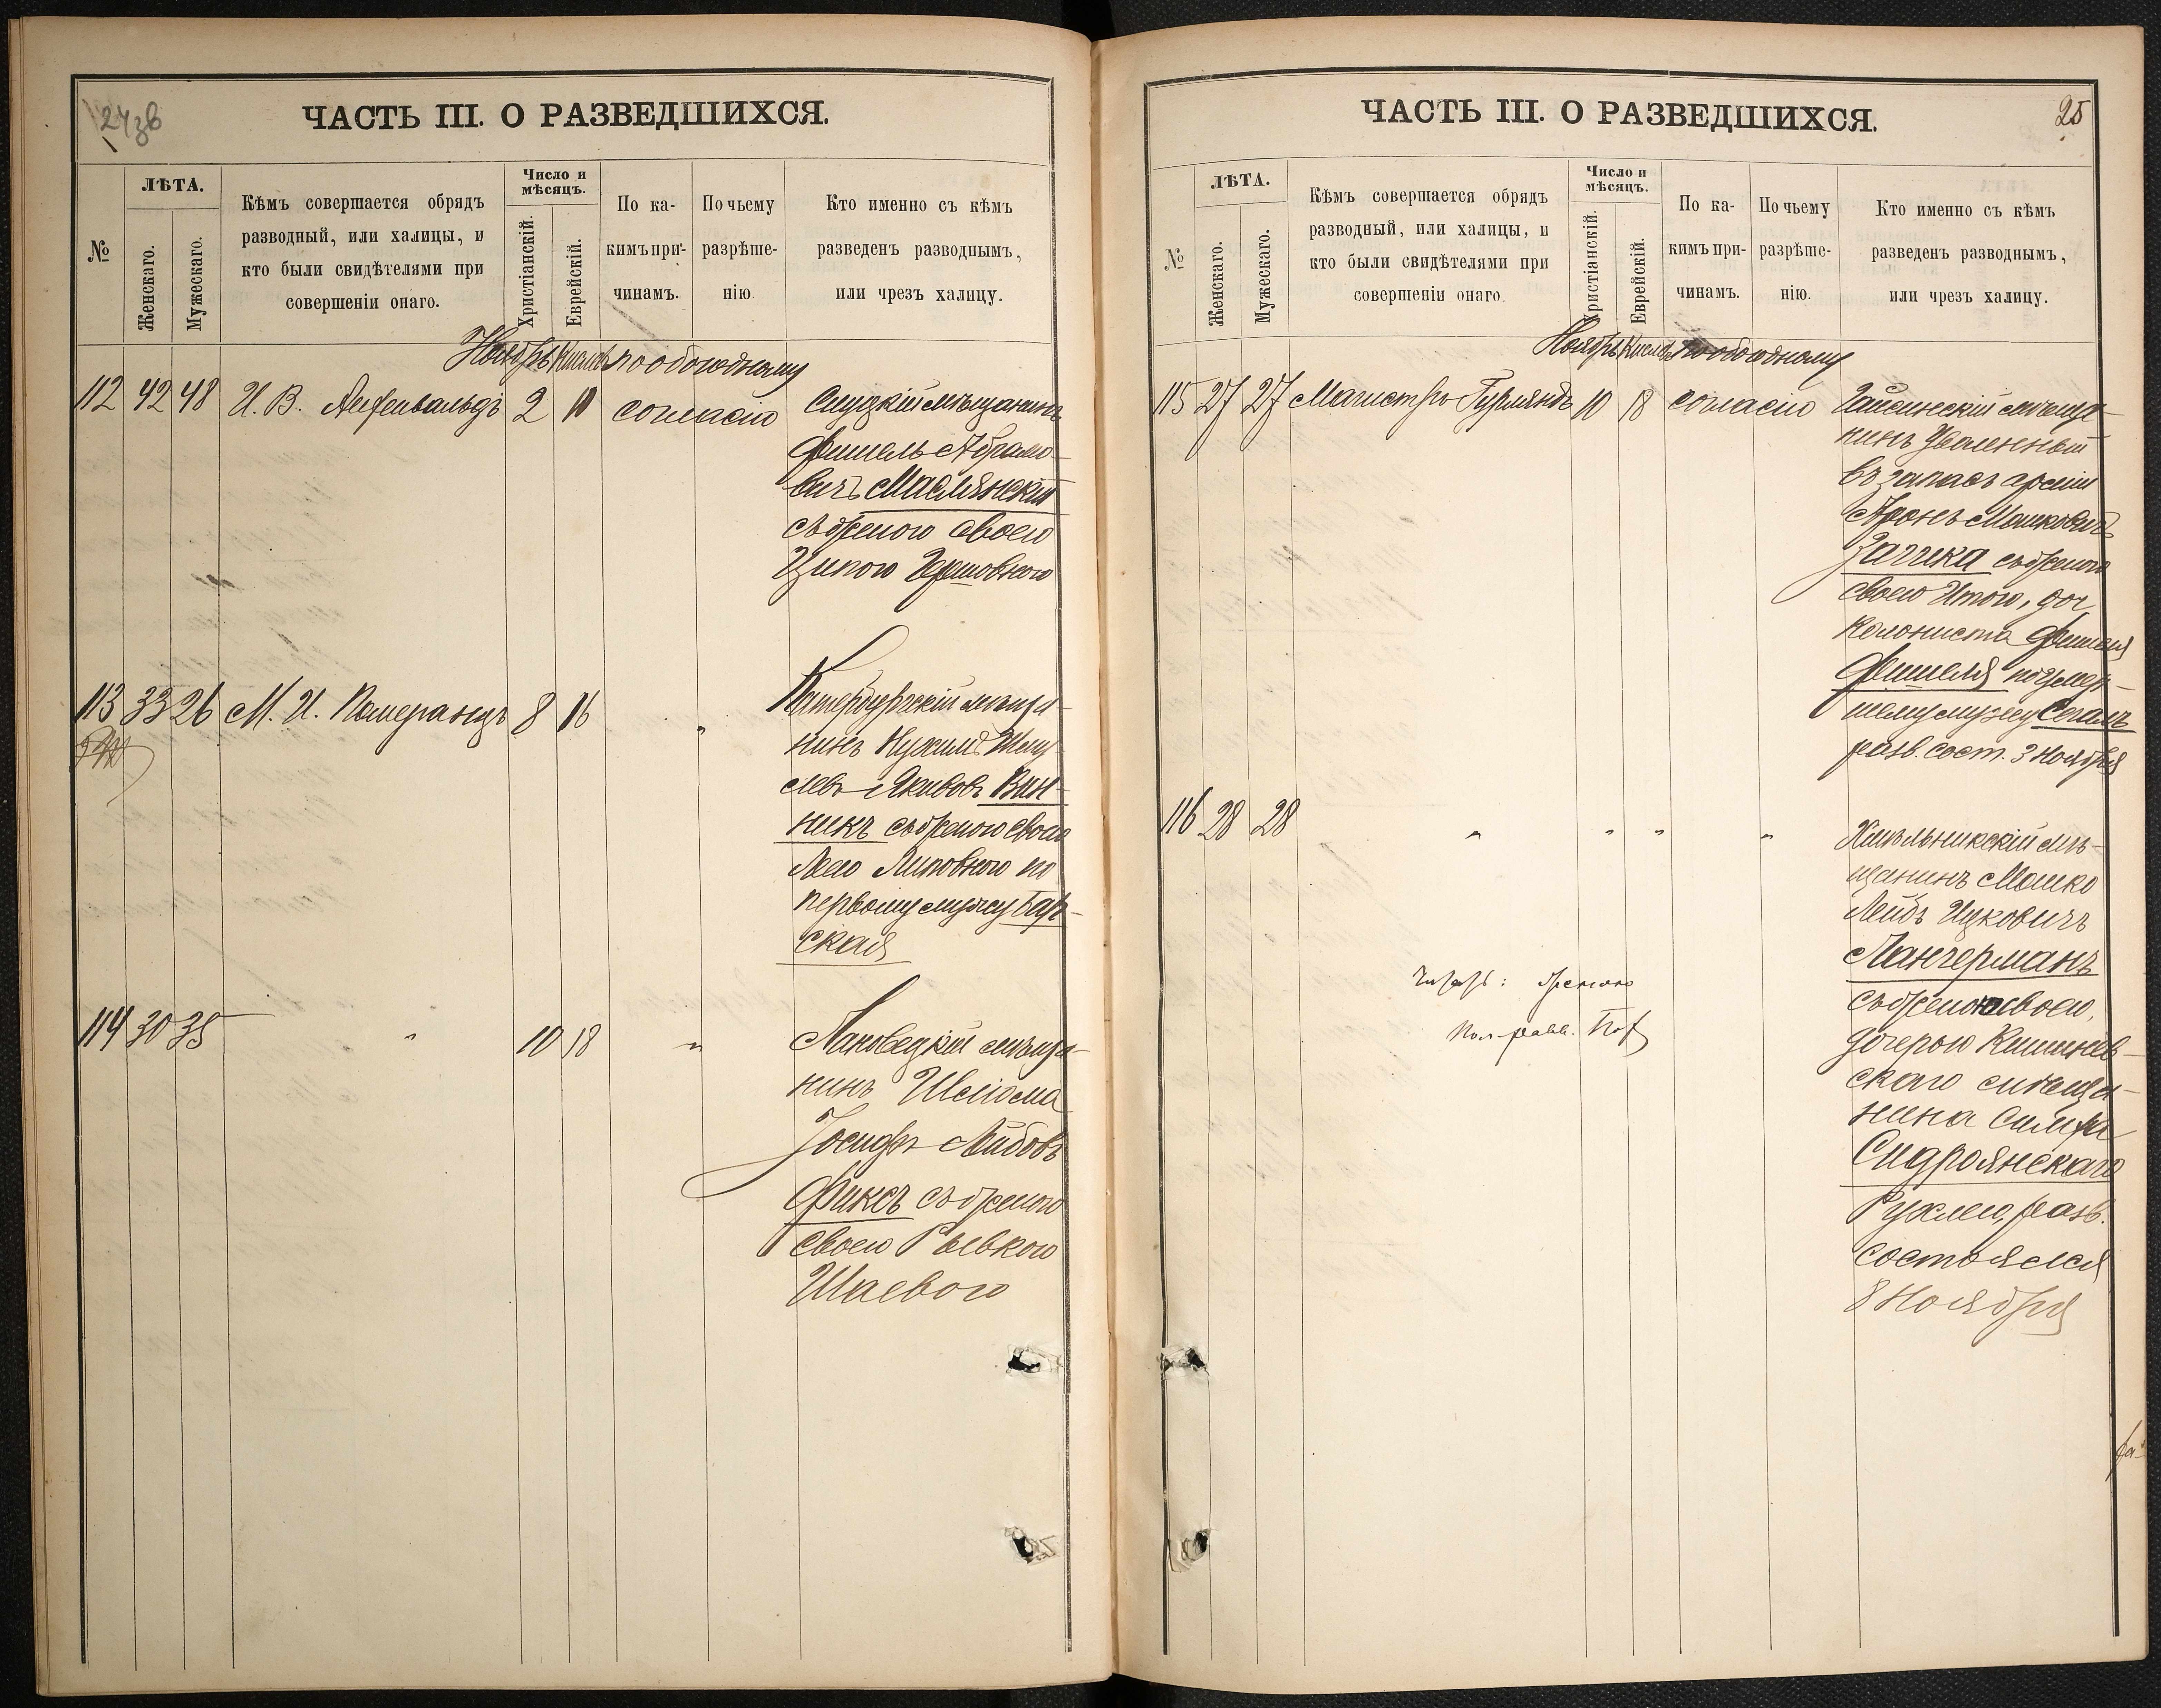 ЧАСТЬ III. О РАЗВЕДШИХСЯ.
№
ЛѢТА.
Женскаго.
Мужескаго.
Кѣмъ совершается обрядъ
разводный, или халицы, и
кто были свидѣтелями при
совершеніи онаго.
Число и
мѣсяцъ.
Христіанскій.
Еврейскій.
По ка-
кимъ при-
чинамъ.
По чьему
разрѣше-
нію.
Кто именно съ кѣмъ
разведенъ разводнымъ,
или чрезъ халицу.
Ноябрь Кислевъ по обоюдному
112 42 48 И. В. 2 11 согласію Слуцкій мѣщанинъ
Фишель Абрамо-
вичъ Маслянскій
съ женою своею
Ципою Гершовною
113 33 26 М. И. Померанцъ 8 16 " мѣща-
нинъ Нухимъ Шму
левъ Якивовъ Вин-
никъ съ женою своею
Леею Липовною по
первому мужу Бар-
ская
114 30 35 " 10 18 " мѣща-
нинъ Шлиома
Іосифъ Лейбовъ
Фиксъ съ женою
своею Рывкою
Шаевою
ЧАСТЬ III. О РАЗВЕДШИХСЯ.
25
№
ЛѢТА.
Женскаго.
Мужескаго.
Кѣмъ совершается обрядъ
разводный, или халицы, и
кто были свидѣтелями при
совершеніи онаго.
Число и
мѣсяцъ.
Христіанскій.
Еврейскій.
По ка-
кимъ при-
чинамъ.
По чьему
разрѣше-
нію.
Кто именно съ кѣмъ
разведенъ разводнымъ,
или чрезъ халицу.
Ноябрь Кислев по обоюдному
115 27 27 Магистръ Гурляндъ 10 18 согласію Гайсинскій мѣща-
нинъ уволенный
въ запасъ арміи
Аронъ Мошковичъ
Зачика съ женою
своею Итою, доч
колониста Фишеля
Фишеля по умер-
шему мужу Сегалъ
разв. сост. 3 Ноября
116 28 28 " " " " Хмѣльникскій мѣ-
щанинъ Мошко
Лейбъ Ицковичъ
Ланчерманъ
съ женою своею,
дочерью Кишинев-
скаго мѣща-
нина Симха
Сидроянскаго
Рухлею, разв.
состоялся
8 Ноября
женою